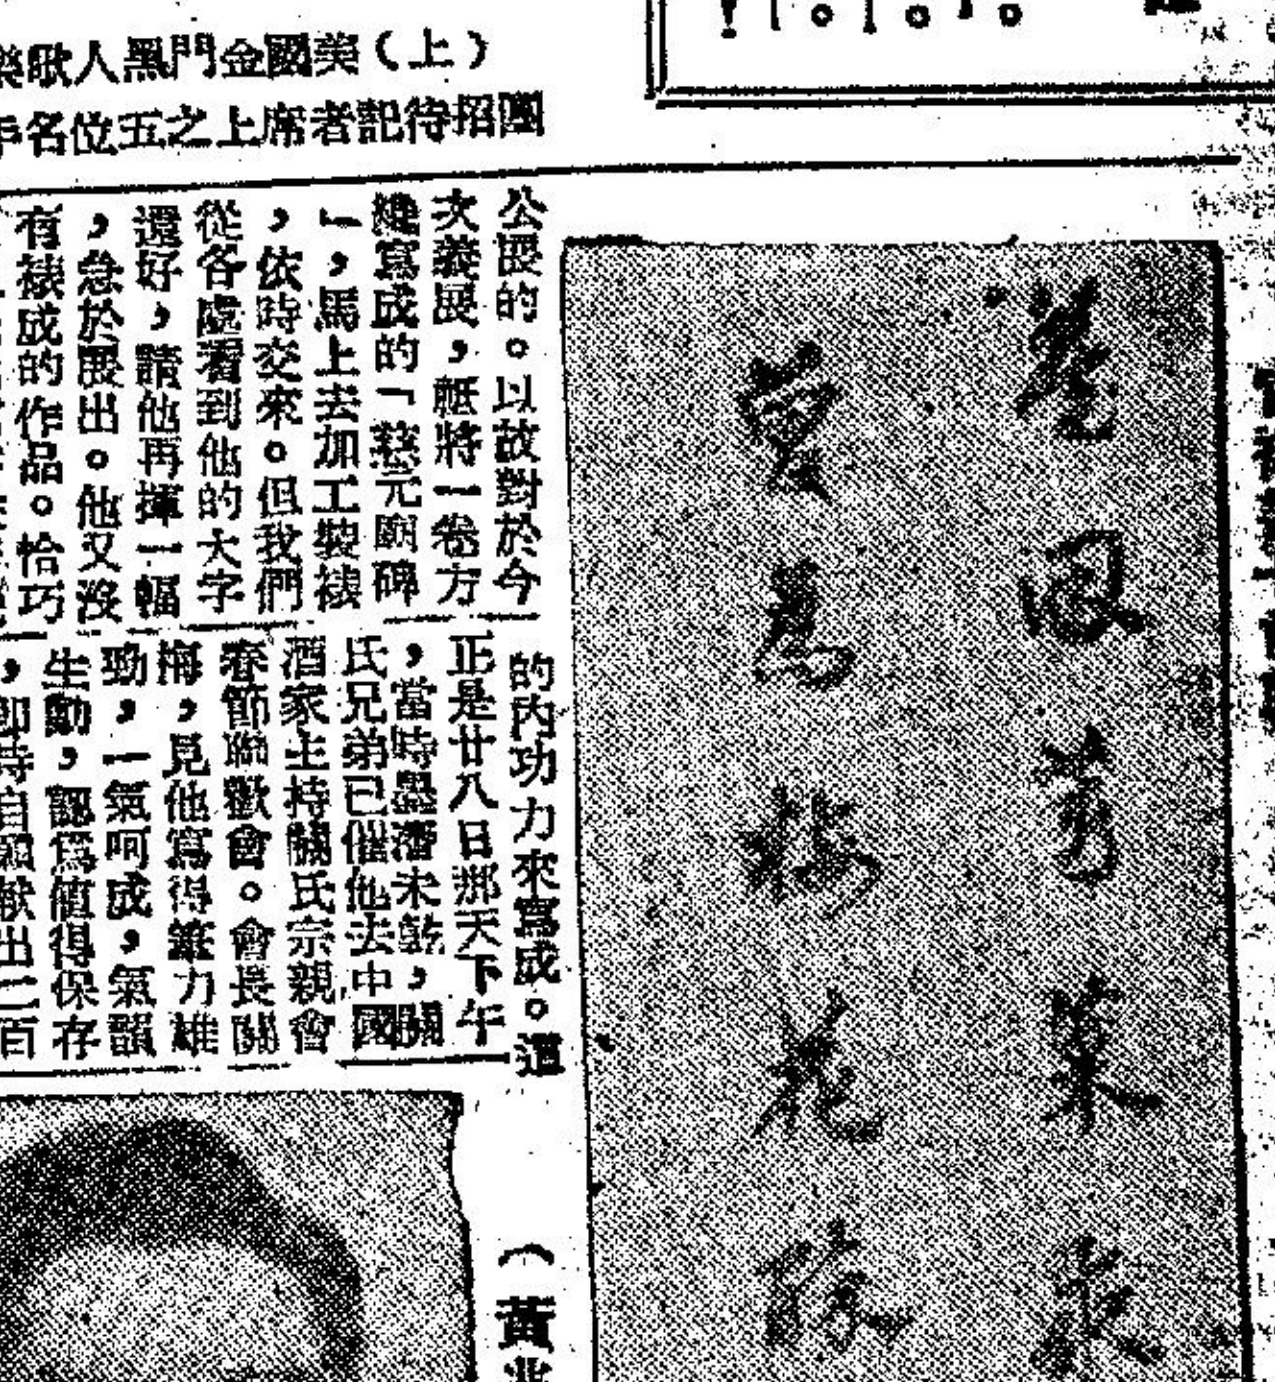 樂歌人黑門金國美（上）
名位五之上席者記待招團
公展的。以故對於今
次義展，祗將一卷方
纔寫成的「慈元廟碑
」，馬上去加工裝裱
，依時交來。但我們
從各處看到他的大字
還好，請他再揮一幅
，急於展出。他又沒
有裱成的作品。恰巧
的內功力來寫成。這
正是廿八日那天下午
，當時墨瀋未乾，關
氏兄弟已催他去中國
酒家主持關氏宗親會
春節聯歡會。會長關
梅，見他寫得筆力雄
勁，一氣呵成，氣韻
生動，認爲值得保存
，卽時自願献出二百
眼 萊
爲 梅 花
（黃